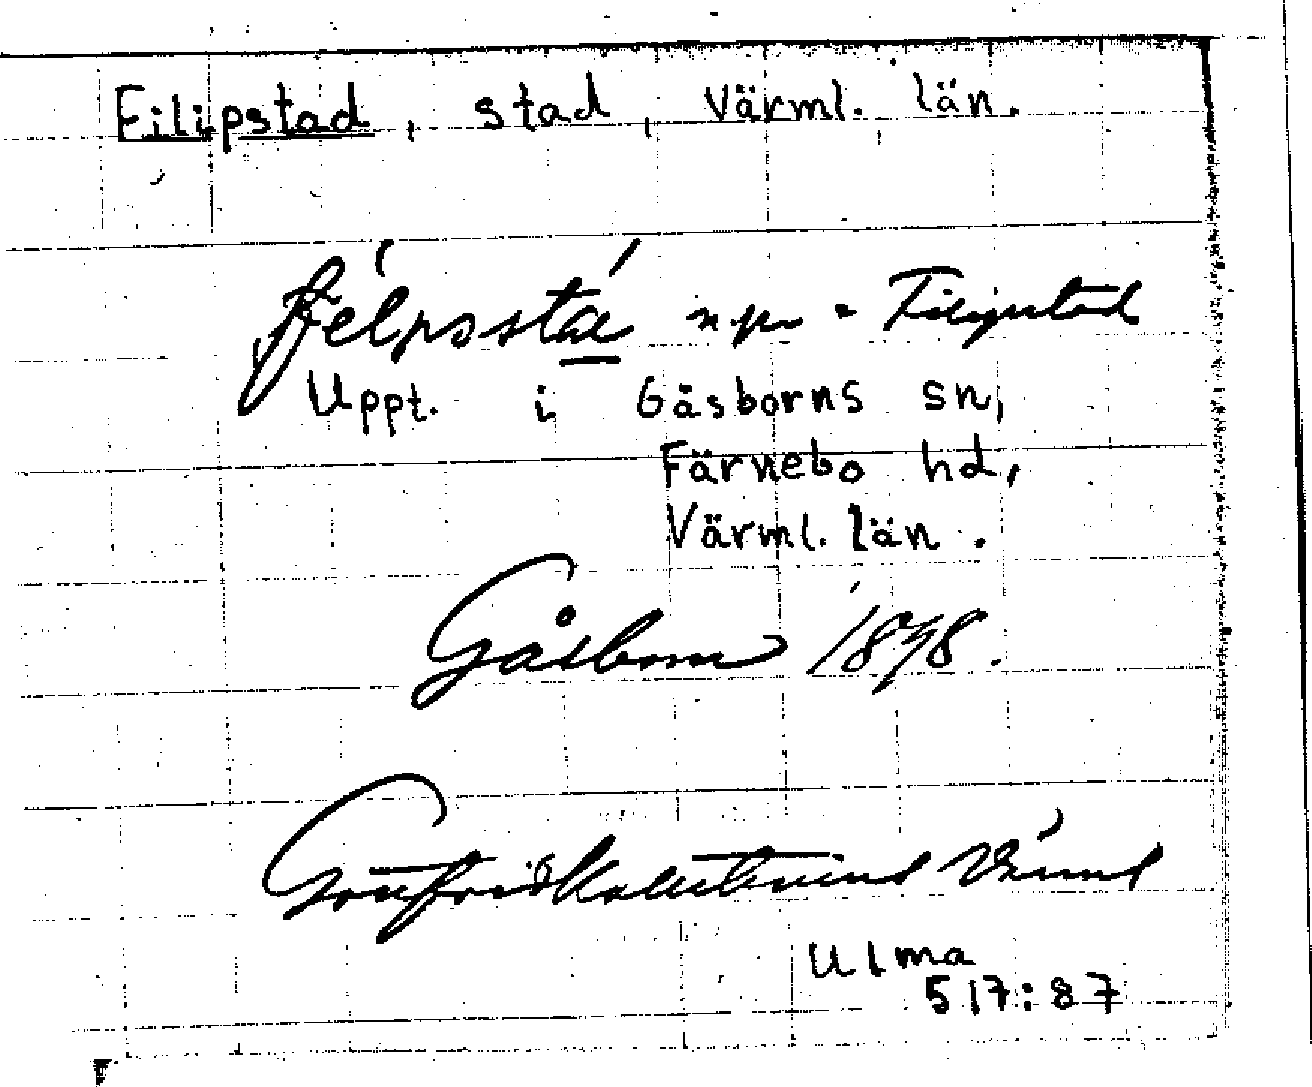 Filipstad, stad, Värml. län.
félpsstá npr = Filipstad
Uppt. i Gåsborns sn,
Färnebo hd,
Värml. län.
Gåsborn 1898.
Gottfrid Kallstenius
Ulma
517:87